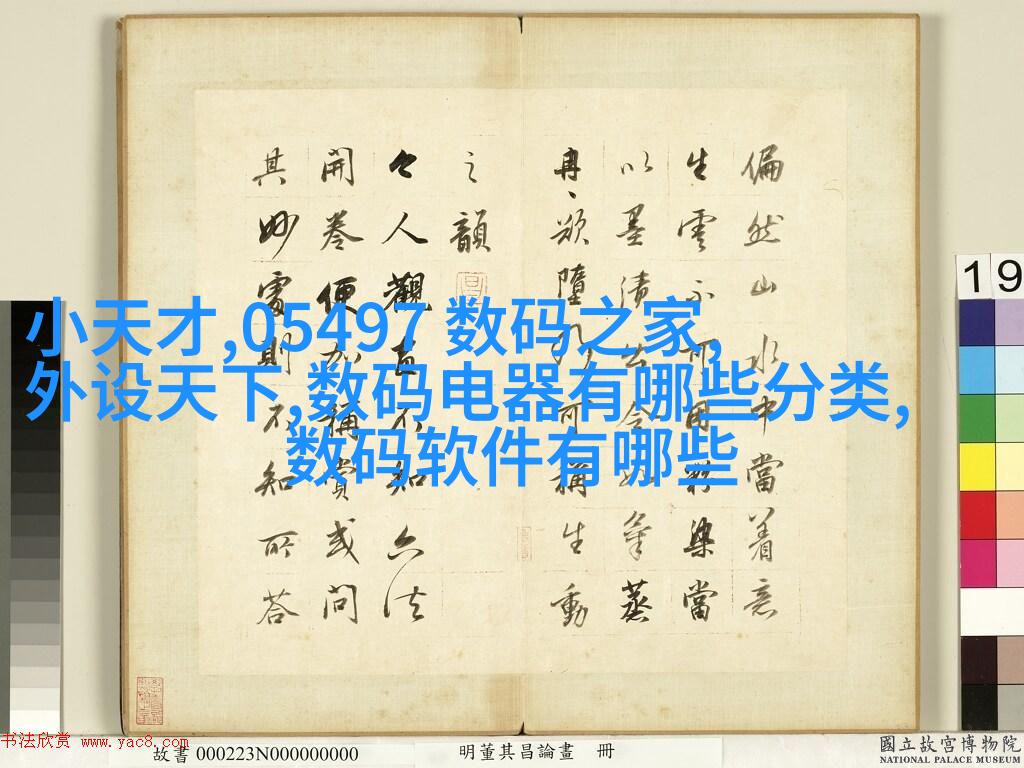 小天才,05497 数码之家,
外设天下,数码电器有哪些分类,
数码软件有哪些
偏然山水中當着意
生雲不可用彩染當
以墨漬出令如氣蒸
冉、欲墮乃可稱生動
之韻
今人觀畫不知六法
開卷便加稱賞或問
其妙處則不知所答
19
书法欣赏 www.yac8.com
故書 000223N000000000
明董其昌論畫 冊
國立故宮博物院
NATIONAL PALACE MUSEUM